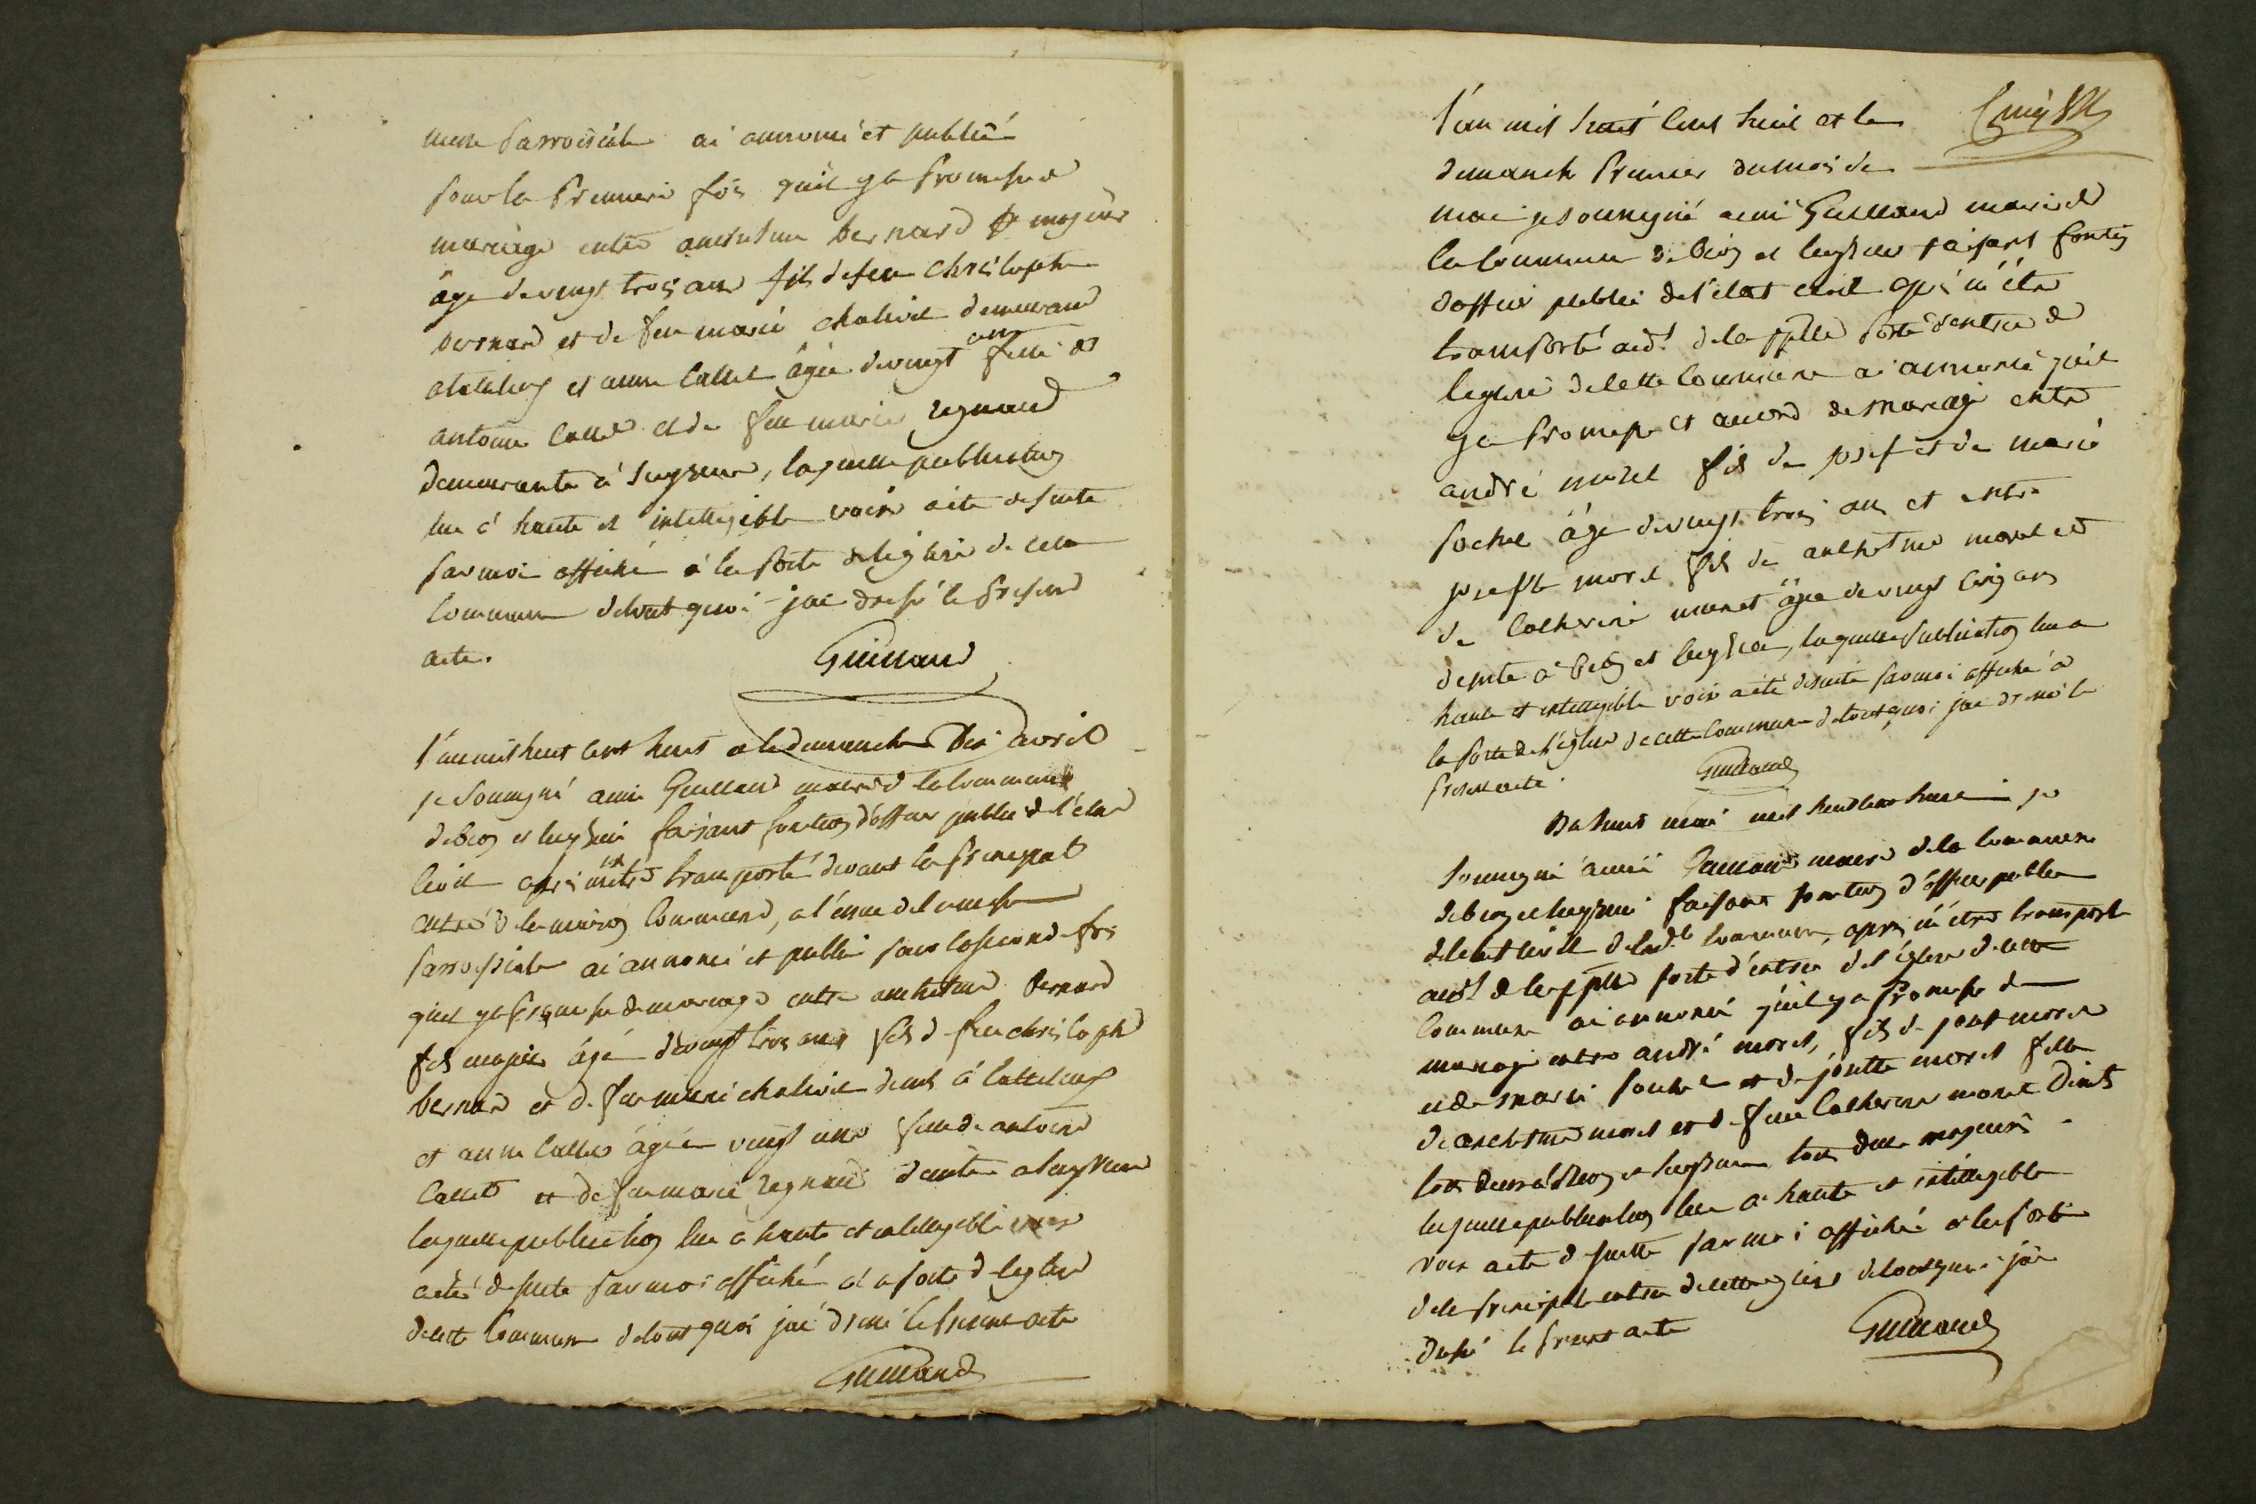 messe parroissiale ai annoncé et publié
pour la premiere fois quil ya promesse de
mariage entre anthelme bernard majeur
âge de vingt trois ans fils de feu christophe
bernard et de feu marie chalivet demeurant
et anne callet âgée de vingt ans fille de
antoine callet et de feu marie regnaud
demeurante à seyssieu, laquelle publication
lue à haute et intelligible voix a ete de suite
par moi affiché à la porte de léglise de cette
commune de tout quoi jai dressé le present
acte. Guilland
l'an mil huit cent huit et le dimanche dix avril
je soussigné aimé Guilland maire de la commune
de et faisant fonction d'officier public de l'état
civil après m'être transporté devant la principal
entrée de la commune, a l'issue de la messe
parroissiale ai annoncé et publié pour la seconde fois
quil ya promesse de mariage entre anthelme Bernard
fils majeur âgé de vingt trois ans fils de feu christophe
bernard et de feu marie chalivet demt à
et anne callet âgée vingt ans fille de antoine
callet et de feu marie regnaud demte a
laquelle publication lue a haute et intelligible voix
a été de suite par moi affiché a la porte de leglise
de cette commune de tout quoi jai dressé le present acte
Guilland
l'an mil huit cent huit et le
dimanche premier du mois de
mai je soussigné aimé Guilland maire de
la commune de et faisant fontion
dofficier public de l'état civil après m'être
transporté audt de la pplle porte d'entrée de
leglise de cette commune ai annoncé quil
ya promesse et accord de mariage entre
andré morel fils de josef et de marie
sochel âge de vingt trois ans et entre
josephte morel fille de anthelme morel et
de catherine monet âgée de vingt cinq ans
demte à et laquelle publication lue a
haute et intelligible voix a été de suite par moi affiché a
la porte de l'église de cette commune de tout quoi jai dressé le
present acte. Guilland
Du huit mai mil huit cent huit je
soussigné aimé Guilland maire de la commune
de et faisant fontion d'officier public
de létat civil de ladte commune, après m'être transporté
audt de la pplle porte d'entrée de l'église de cette
commune ai annoncé quil ya promesse de
mariage entre andré morel, fils de josept morel
et de marie sochel et de josette morel fille
de anthelme morel et de feue catherine monet dmts
tous deux à et tous deux majeurs
laquelle publication lue à haute et intelligible
voix a ete de suitte par moi affiché a la porte
de la principale entrée de cette eglise de tout quoi jai
dressé le present acte Guilland